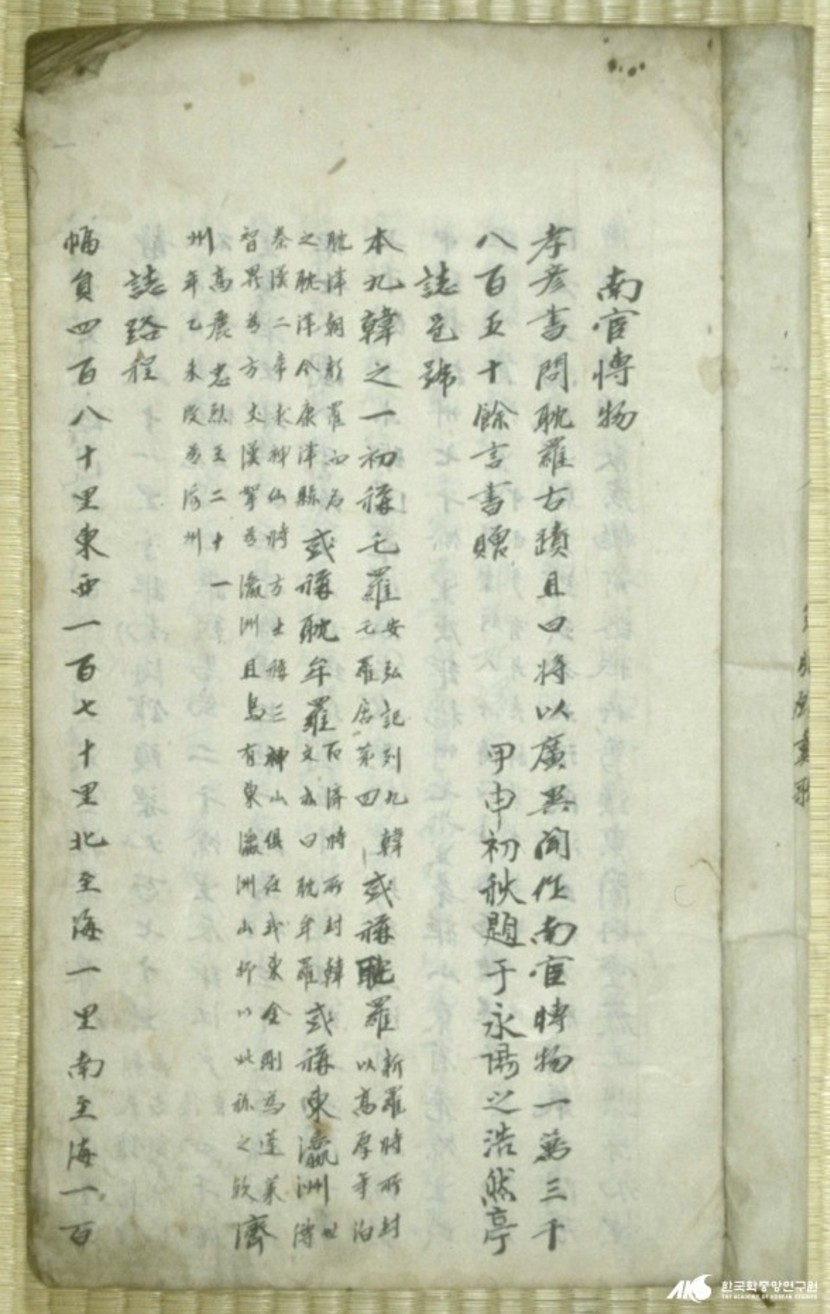 南宦博物
孝彦書問耽羅古蹟且曰將以廣異聞作南宦博物一萬三千
八百五十餘言書贈 甲申初秋題于永陽之浩然亭
誌邑號
本九韓之一初稱乇羅安弘記列九韓乇羅居第四或稱耽羅新羅時所封以高厚等泊
耽津朝新羅而后之耽津今康津縣或稱耽牟羅百濟時所封韓文亦曰耽牟羅或稱東瀛洲世傳
秦漢二帝求神仙將方士將三神山俱在我東金剛爲蓬萊
智異爲方丈漢拏爲瀛洲且島有東瀛洲山抑以此稱之歟濟
州高麗忠烈王二十一年乙未改爲濟州
誌路程
幅員四百八十里東西一百七十里北至海一里南至海一百
한국학중앙연구원
THE ACADEMY OF KOREAN STUDIES